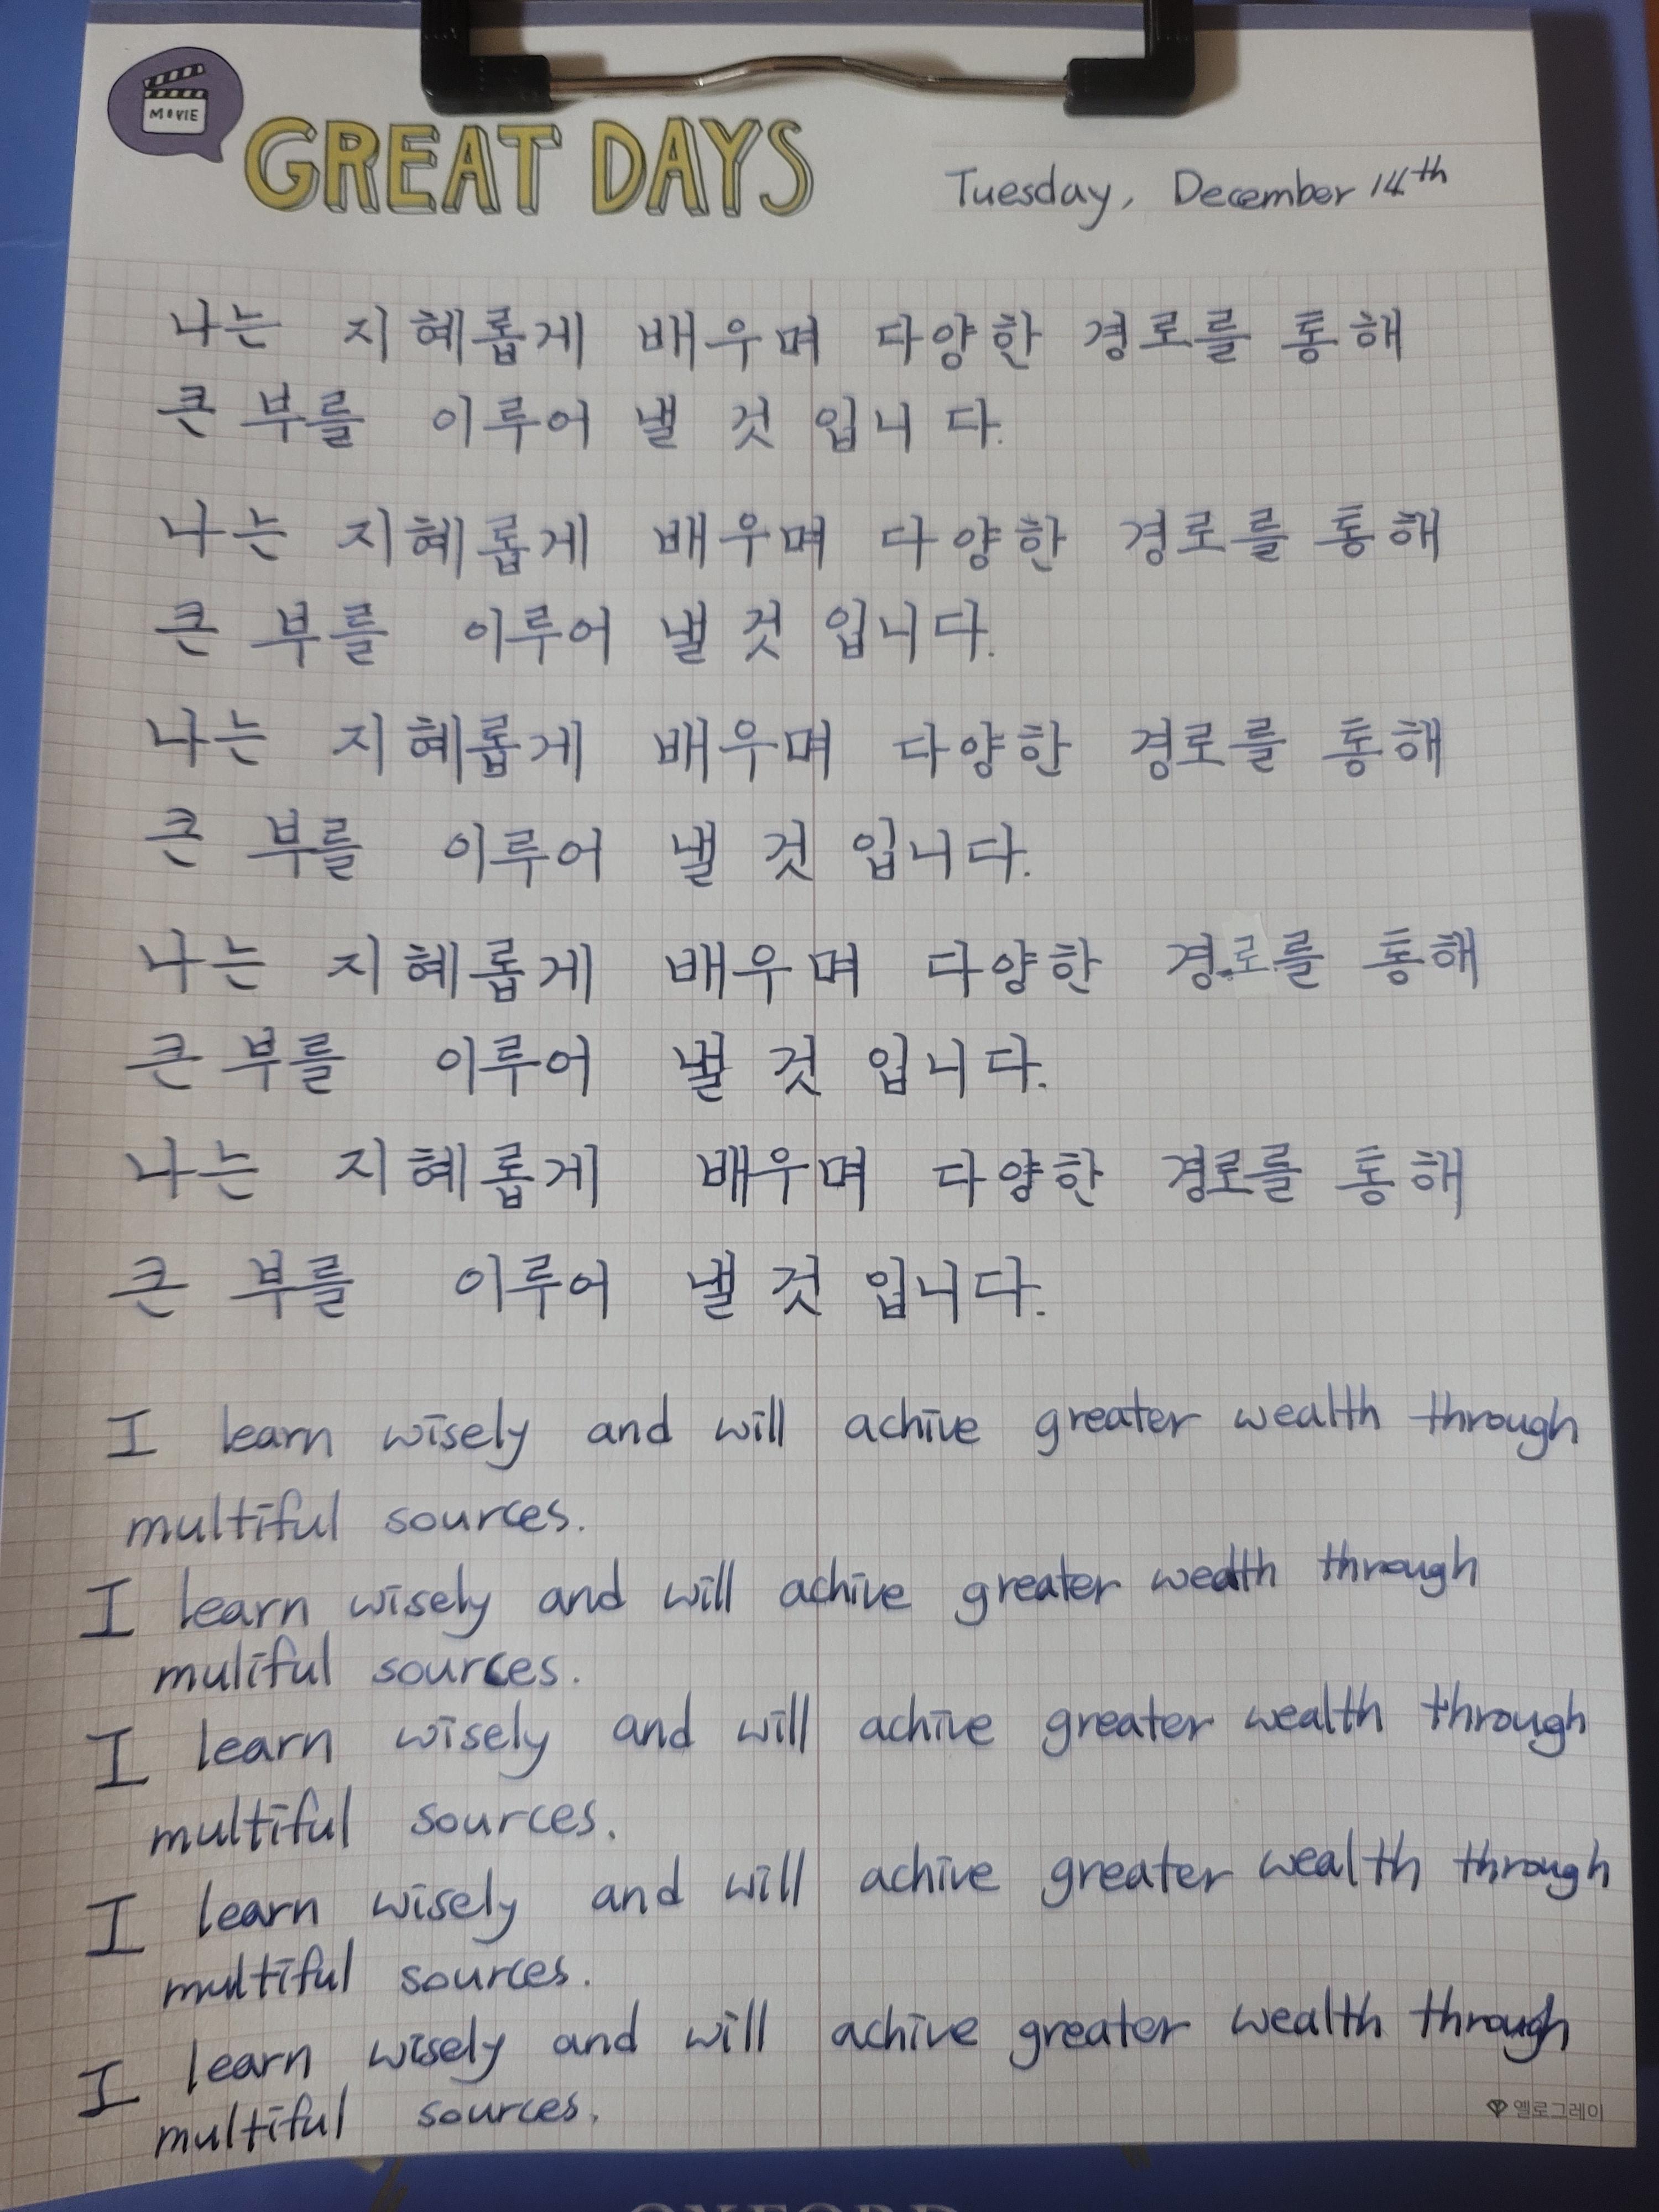 MOVIE
GREAT DAYS
Tuesday, December 14th
나는 지혜롭게 배우며 다양한 경로를 통해
큰 부를 이루어 낼 것 입니다.
나는 지혜롭게 배우며 다양한 경로를 통해
큰 부를 이루어 낼 것 입니다.
나는 지혜롭게 배우며 다양한 경로를 통해
큰 부를 이루어 낼 것 입니다.
나는 지혜롭게 배우며 다양한 경로를 통해
큰 부를 이루어 낼 것 입니다.
나는 지혜롭게 배우며 다양한 경로를 통해
큰 부를 이루어 낼 것 입니다.
I learn wisely and will achive greater wealth through
multiful sources.
I learn wisely and will achive greater wealth through
muliful sources.
I learn wisely and will achive greater wealth through
multiful sources.
I learn wisely and will achive greater wealth through
multiful sources.
I learn wisely and will achive greater wealth through
multiful sources.
옐로그레이